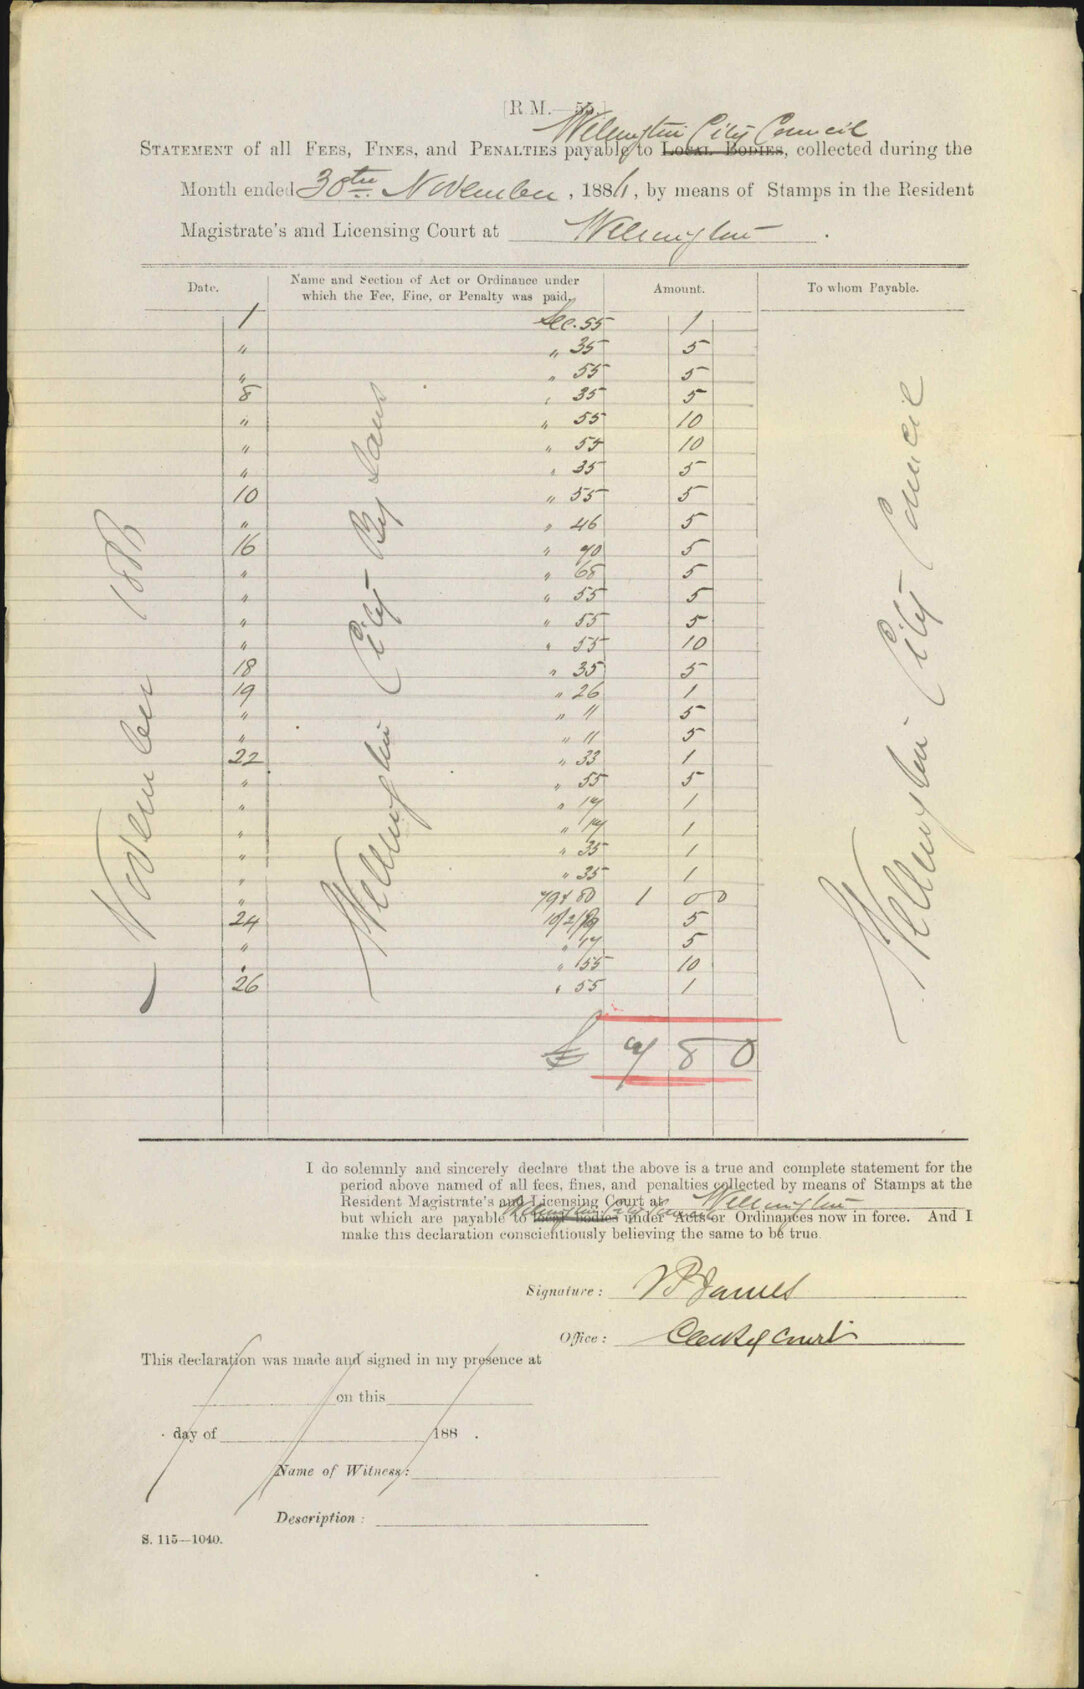 [R M.—55.]
Wellington City Council
STATEMENT of all FEES, FINES, and PENALTIES payable to LOCAL BODIES, collected during the
Month ended 30th November, 188, by means of Stamps in the Resident
Magistrate's and Licensing Court at Wellington.
Date. Name and Section of Act or Ordinance under which the Fee, Fine, or Penalty was paid. Amount. To whom Payable.
November
Wellington City By Laws
Wellington City Council
1 Sec. 55 1
" " 35 5
" " 55 5
8 " 35 5
" " 55 10
" " 55 10
" " 35 5
10 " 55 5
" " 46 5
16 " 70 5
" " 68 5
" " 55 5
" " 55 5
" " 55 10
18 " 35 5
19 " 26 1
" " 11 5
" " 11 5
22 " 33 1
" " 55 5
" " 17 1
" " 17 1
" " 35 1
" " 35 1
" 79 & 80 1 0 0
24 5
" " 17 5
" " 55 10
26 " 55 1
£ 7 8 0
I do solemnly and sincerely declare that the above is a true and complete statement for the
period above named of all fees, fines, and penalties collected by means of Stamps at the
Resident Magistrate's and Licensing Court at Wellington
Wellington City Council
but which are payable to local bodies under Acts or Ordinances now in force. And I
make this declaration conscientiously believing the same to be true.
Signature: James
Office: Clerk of Court
This declaration was made and signed in my presence at
on this
day of 188 .
Name of Witness:
Description:
S. 115—1040.